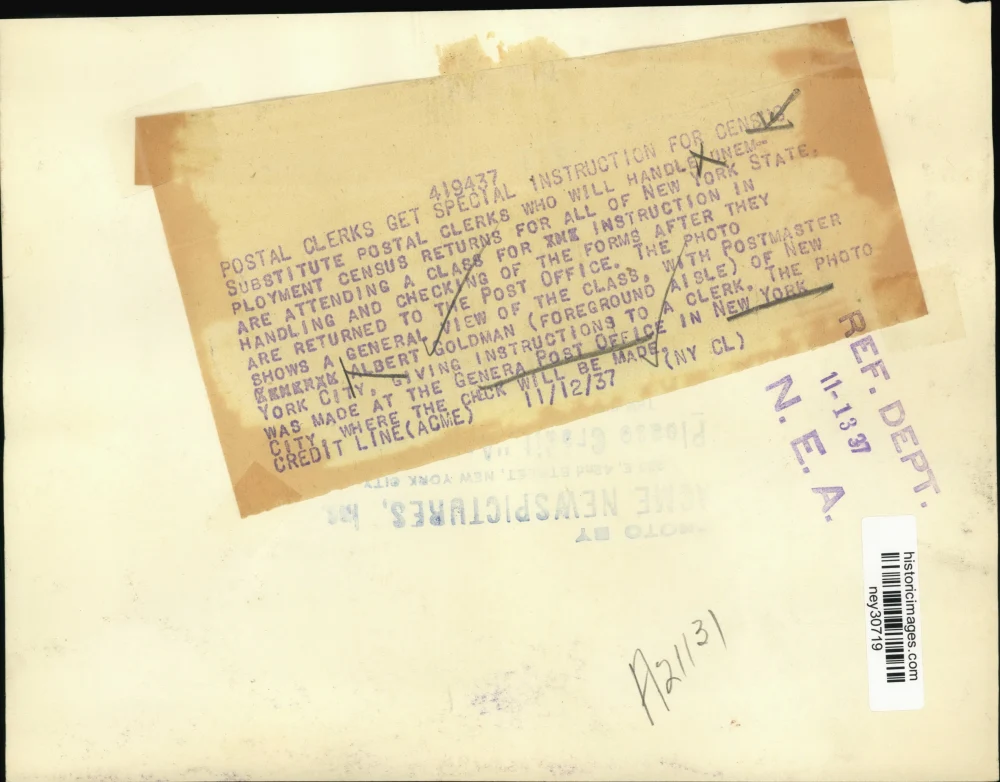 419437
POSTAL CLERKS GET SPECIAL INSTRUCTION FOR CENSUS
SUBSTITUTE POSTAL CLERKS WHO WILL HANDLE UNEM-
PLOYMENT CENSUS RETURNS FOR ALL OF NEW YORK STATE,
ARE ATTENDING A CLASS FOR INSTRUCTION IN
HANDLING AND CHECKING OF THE FORMS AFTER THEY
ARE RETURNED TO THE POST OFFICE. THE PHOTO
SHOWS A GENERAL VIEW OF THE CLASS, WITH POSTMASTER
ALBERT GOLDMAN (FOREGROUND AISLE) OF NEW
YORK CITY, GIVING INSTRUCTIONS TO A CLERK. THE PHOTO
WAS MADE AT THE GENERA POST OFFICE IN NEW YORK
CITY, WHERE THE CHCK WILL BE MADE (NY CL)
CREDIT LINE(ACME) 11/12/37
Please Credit
42nd STREET, NEW YORK CITY
ACME NEWSPICTURES, Inc
PHOTO BY
REF. DEPT.
11-13 37
N. E. A.
historicimages.com
ney30719
A21131